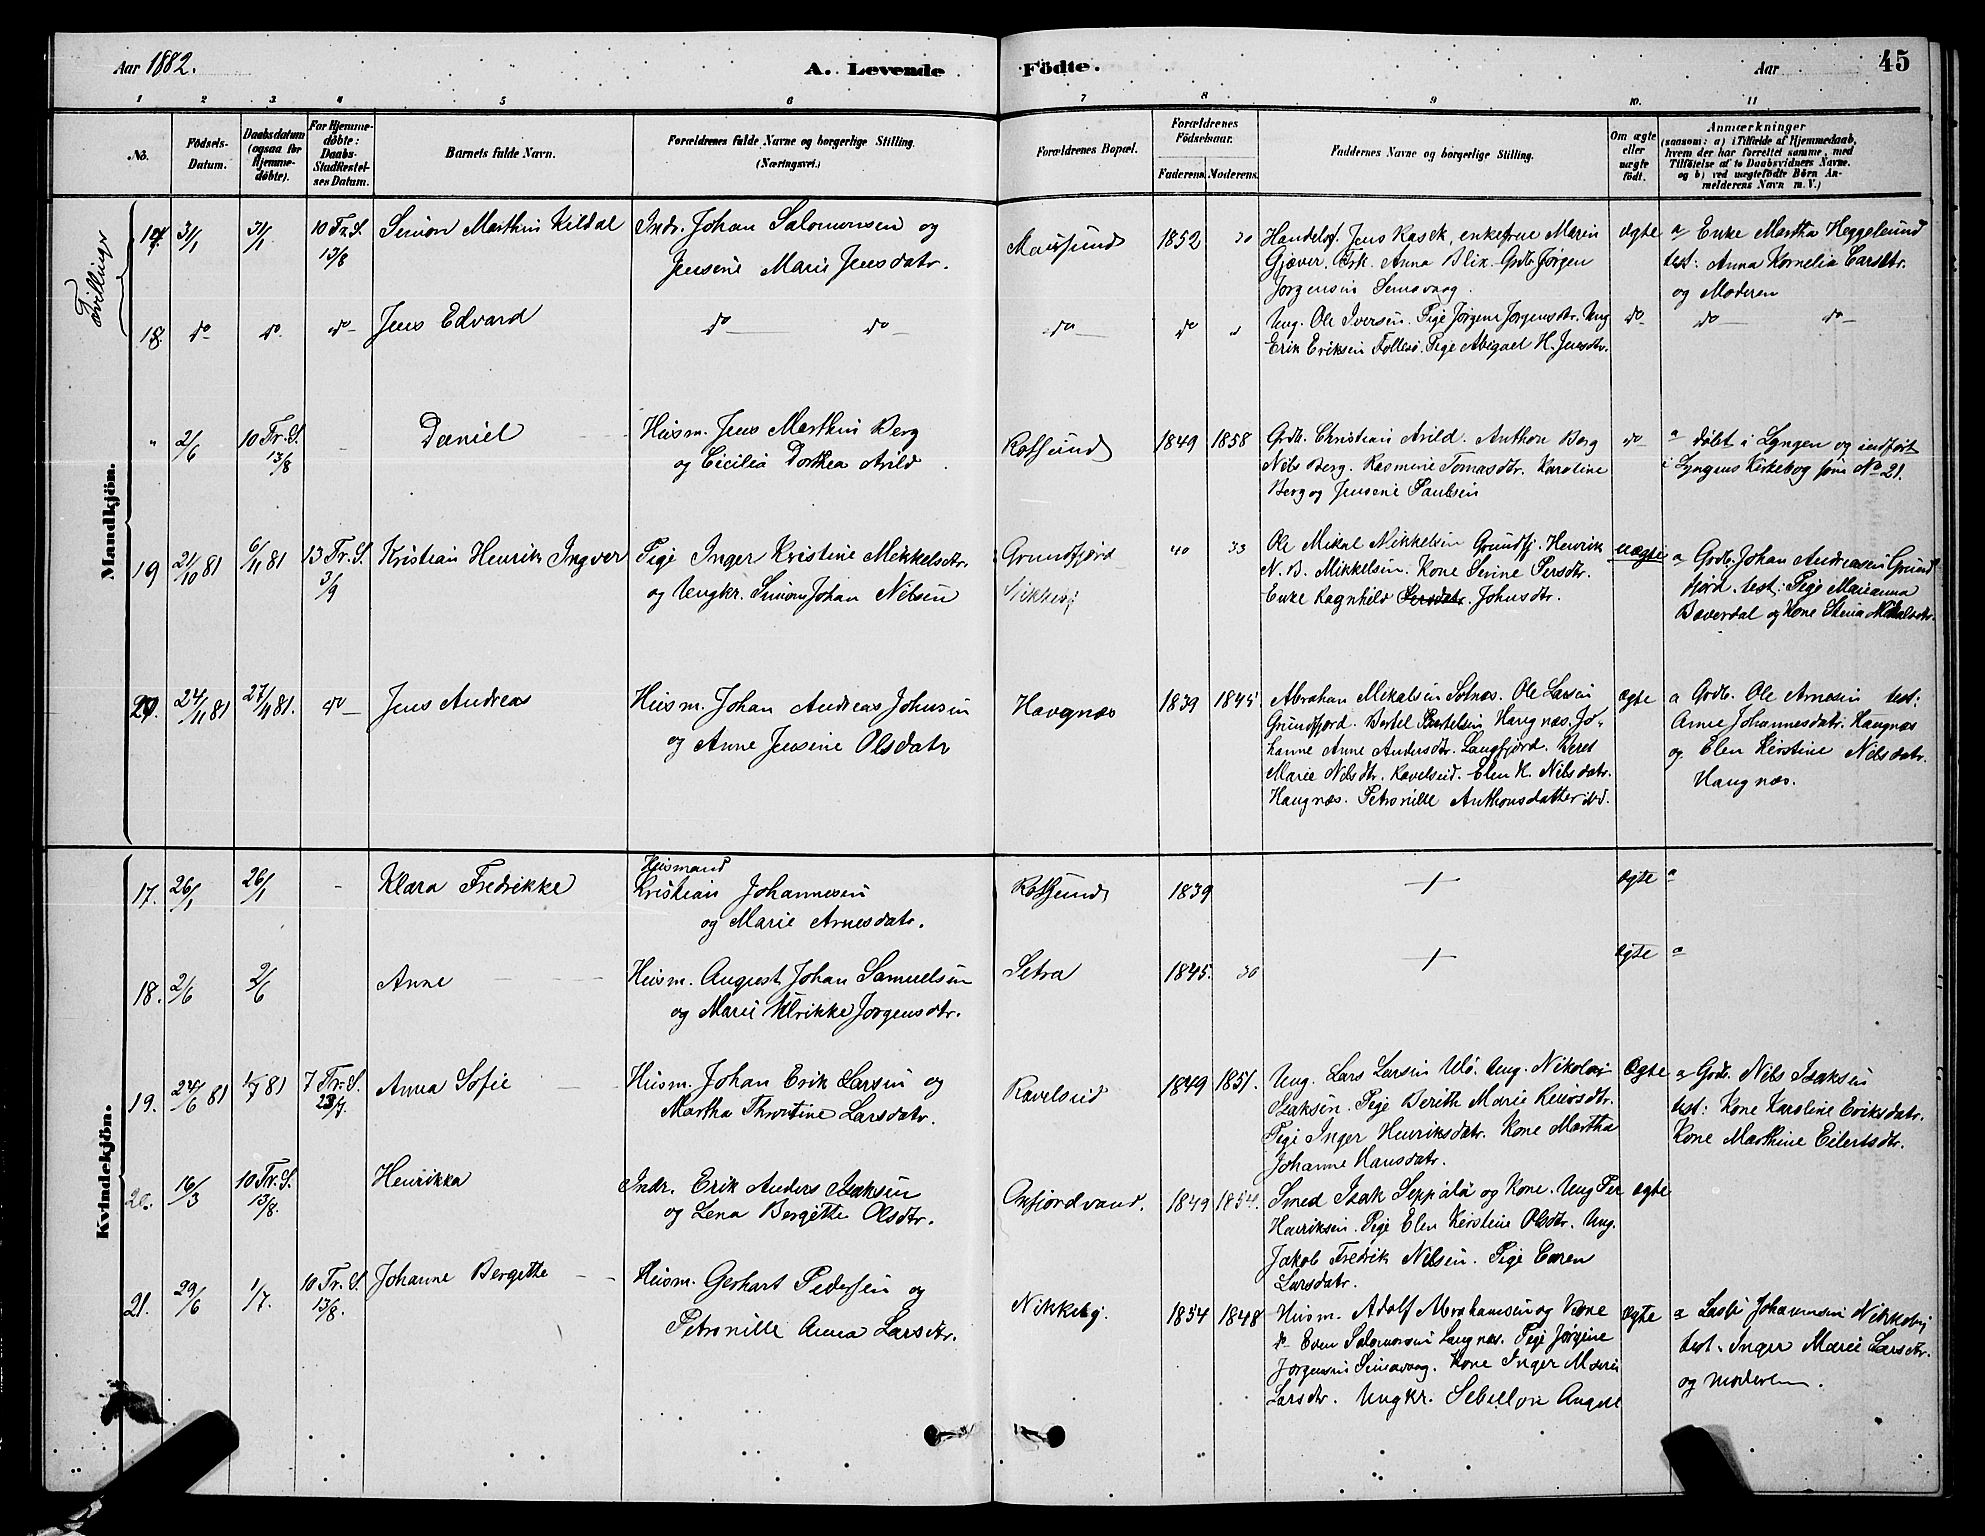 Aar 1882.
A. Levende Födte.
Aar
45
1 2 3. 4 5 6 7 8 9 10. 11
No.
Födsels-Datum.
Daabsdatum (ogsaa for Hjemme-döbte).
For Hjemme-döbte: Daabs-Stadfæstel-ses Datum.
Barnets fulde Navn.
Forældrenes fulde Navne og borgerlige Stilling. (Næringsvei.)
Forældrenes Bopæl.
Forældrenes Födselsaar.
Faderens. Moderens.
Faddernes Navne og borgerlige Stilling.
Om ægte eller uægte födt.
Anmærkninger (saasom: a) i Tilfælde af Hjemmedaab, hvem der har forrettet samme, med Tilföielse af to Daabsvidners Navne. og b) ved uægtefödte Børn An-melderens Navn m. V.)
Tvillinger
Mandkjön.
17. 31/1 31/1. 10 Tr. S. 13/8 Simon Marthin Kildal
Indr. Johan Salomonsen og
Jensine Marie Jensdatr.
Maursund 1852 30
Handelsf. Jens Rasch, enkefrue Maren
Gjæver. Frk. Anna Blix. Grdb. Jörgen
Jörgensen
ægte
a Enke Martha Heggelund
test: Anna Kornelia Carsdtr.
og Moderen
18. do do. do Jens Edvard do do do do
Ung. Ole Iversen. Pige Jörgine Jörgensdtr. Ung
Erik Eriksen Follesö. Pige Abigael H. Jensdtr.
do do do
" 2/6 10 Tr. S. 13/8 Daniel
Husm. Jens Marthin Berg
og Cecilia Dorthea Arild
Rotsund 1849 1858
Grdb. Christian Arild. Anthon Berg
Nils Berg. Rasmine Tomasdtr. Karoline
Berg og Jensine Paulsen
do
a döbt i Lyngen og indfört
i Lyngens Kirkebog som No 21.
19 21/10 81 6/11 81 13 Tr. S. 3/9 Kristian Henrik Ingver
Pige Inger Kristine Mikkelsdtr.
og Ungkr. Simon Johan Nilsen
Grundfjord
40 33
Ole Mikal Mikkelsen Grundfj. Henrik
N. B. Mikkelsen. Kone Serine Persdtr.
Enke Ragnhild Persdatr. Johnsdtr.
uægte
a Grdb. Johan Andreasen Grund
fjord. test: Pige Marianna
Bæverdal og Kone Stina Mikalsdtr.
20. 24/11 81 27/11 81. do Jens Andreas
Husm. Johan Andreas Johnsen
og Anne Jensine Olsdatr
Havgnæs 1839 1845.
Abrahan Mikalsen Sotnæs. Ole Larsen
Grundfjord. Bertel Bertelsen Haugnæs. Jo-
hanne Anne Andersdtr. Langfjord. Beret
Marie Nilsdtr. Ravelseid. Elen K. Nilsdatr.
Haugnæs. Petronille Anthonsdatter ibd.
ægte
a Grdb. Ole Arnesen test:
Anne Johannesdatr. Haugnæs
og Elen Kirstine Nilsdatr.
Haugnæs.
Kvindekjön.
17. 26/1 26/1 - Klara Fredrikke
Husmand
Kristian Johannesen
og Marie Arnesdatr.
Rotsund 1839
ægte a
18. 2/6 2/6 Anne
Husm. August Johan Samuelsen
og Marie Ulrikke Jörgensdtr.
Setra 1845. 30
ægte a
19. 24/6 81 1/7 81 7 Tr. S. 23/7. Anna Sofie
Husm. Johan Erik Larsen og
Martha Thrutine Larsdatr.
Ravelseid 1849 1851.
Ung. Lars Larsen Ulö. Ung. Nikolai
Isaksen. Pige Berith Marie Reiersdtr.
Pige Inger Henriksdatr. Kone Martha
Johanne Hansdatr.
Ægte
a Grdb. Nils Isaksen
test: Kone Karoline Eriksdatr.
Kone Marthine Eilertsdtr.
20. 16/3 10 Tr. S. 13/8. Henrikka
Indr. Erik Anders Isaksen
og Lena Bergitte Olsdtr.
Oxfjordvand. 1849 1854.
Smed Isak Seppälä og Kone. Ung Per
Henriksen. Pige Elen Kirstine Olsdtr. Ung.
Jakob Fredrik Nilsen. Pige Karen
Larsdatr.
ægte
21. 29/6 1/7. 10 Tr. S. 13/8. Johanne Bergitte
Husm. Gerhart Pedersen og
Petronille Anna Larsdtr.
Nikkeby. 1854 1848
Husm. Adolf Abrahamsen og Kone
Do Even Salomonsen Langnes. Pige Jörgine
Jörgensen. Kone Inger Marie
Larsdtr. Ungkr.
Ægte
a Johannesen Nikkeby
test. Inger Marie Larsdtr.
og moderen.